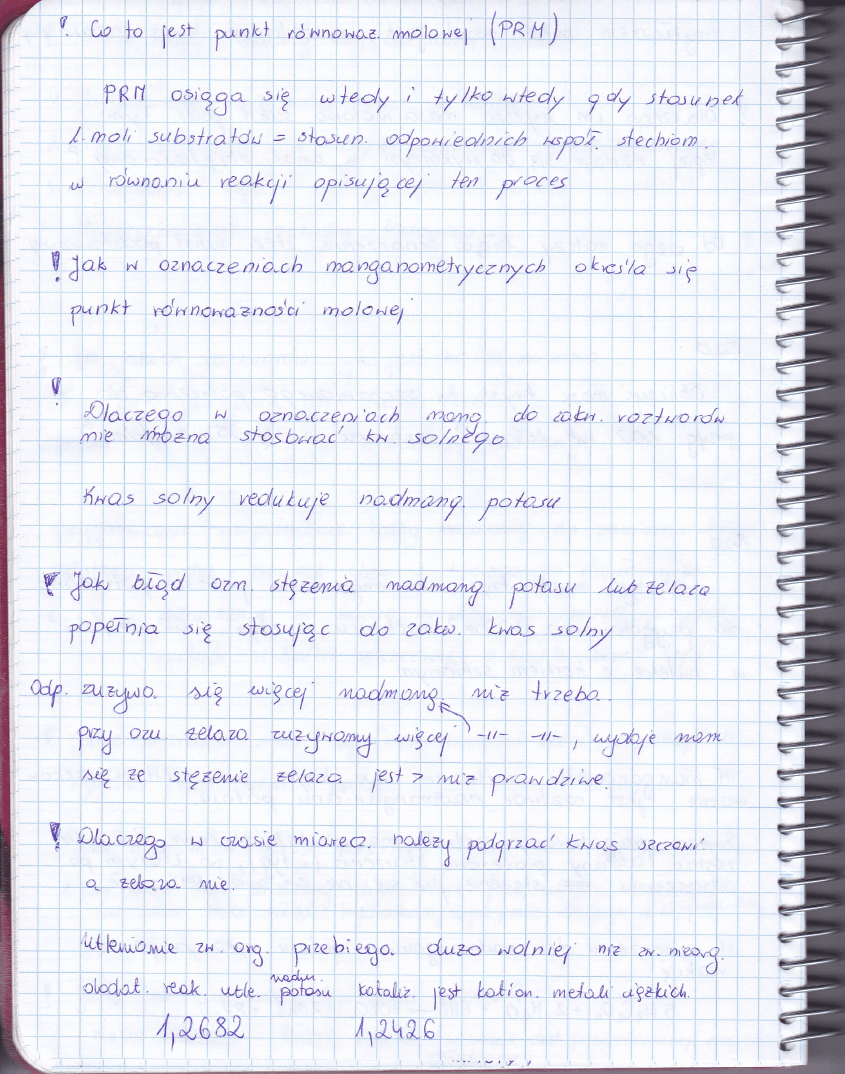 ! Co to jest punkt równoważ. molowej (PRM)
PRM osiąga się wtedy i tylko wtedy gdy stosunek
l. moli substratów = stosun. odpowiednich współ. stechiom.
w równaniu reakcji opisującej ten proces
! Jak w oznaczeniach manganometrycznych określa się
punkt równoważności molowej
!
Dlaczego w oznaczeniach mang. do zakw. roztworów
nie można stosować kw. solnego
Kwas solny redukuje nadmang. potasu
! Jak błąd ozn. stężenia nadmang. potasu lub żelaza
popełnia się stosując do zakw. kwas solny
Odp. zużywa się więcej nadmang. niż trzeba.
przy ozn żelaza zużywamy więcej -||- -||-, wydaje nam
się że stężenie żelaza jest > niż prawdziwe.
! Dlaczego w czasie miarecz. należy podgrzać kwas szczawi
a żelaza nie.
Utlenianie zw. org. przebiega dużo wolniej niż zw. nieorg.
dodat. reak. utle. nadm. potasu kataliz. jest kation. metali ciężkich.
1,2682 1,2426